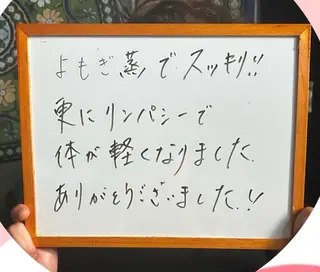 よもぎ蒸でスッキリ!!
更にリンパシーで
体が軽くなりました.
ありがとうございました.!